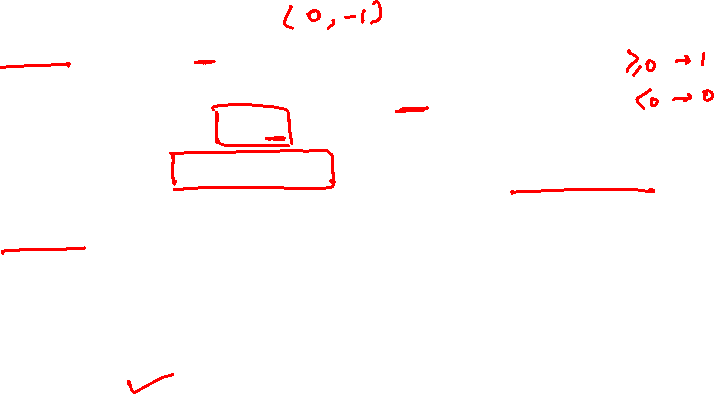 (0, -1)
≥0 → 1
<0 → 0